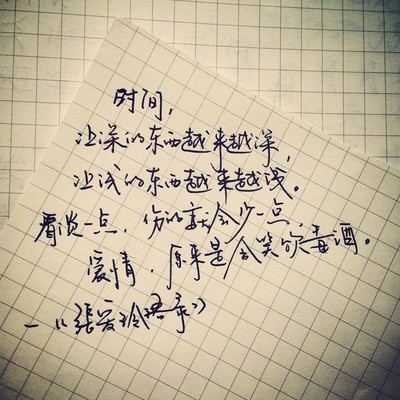 时间，
让深的东西越来越深，
让浅的东西越来越浅。
看淡一点，伤的就会少一点
爱情，原来是含笑饮毒酒。
—《張爱玲语录》